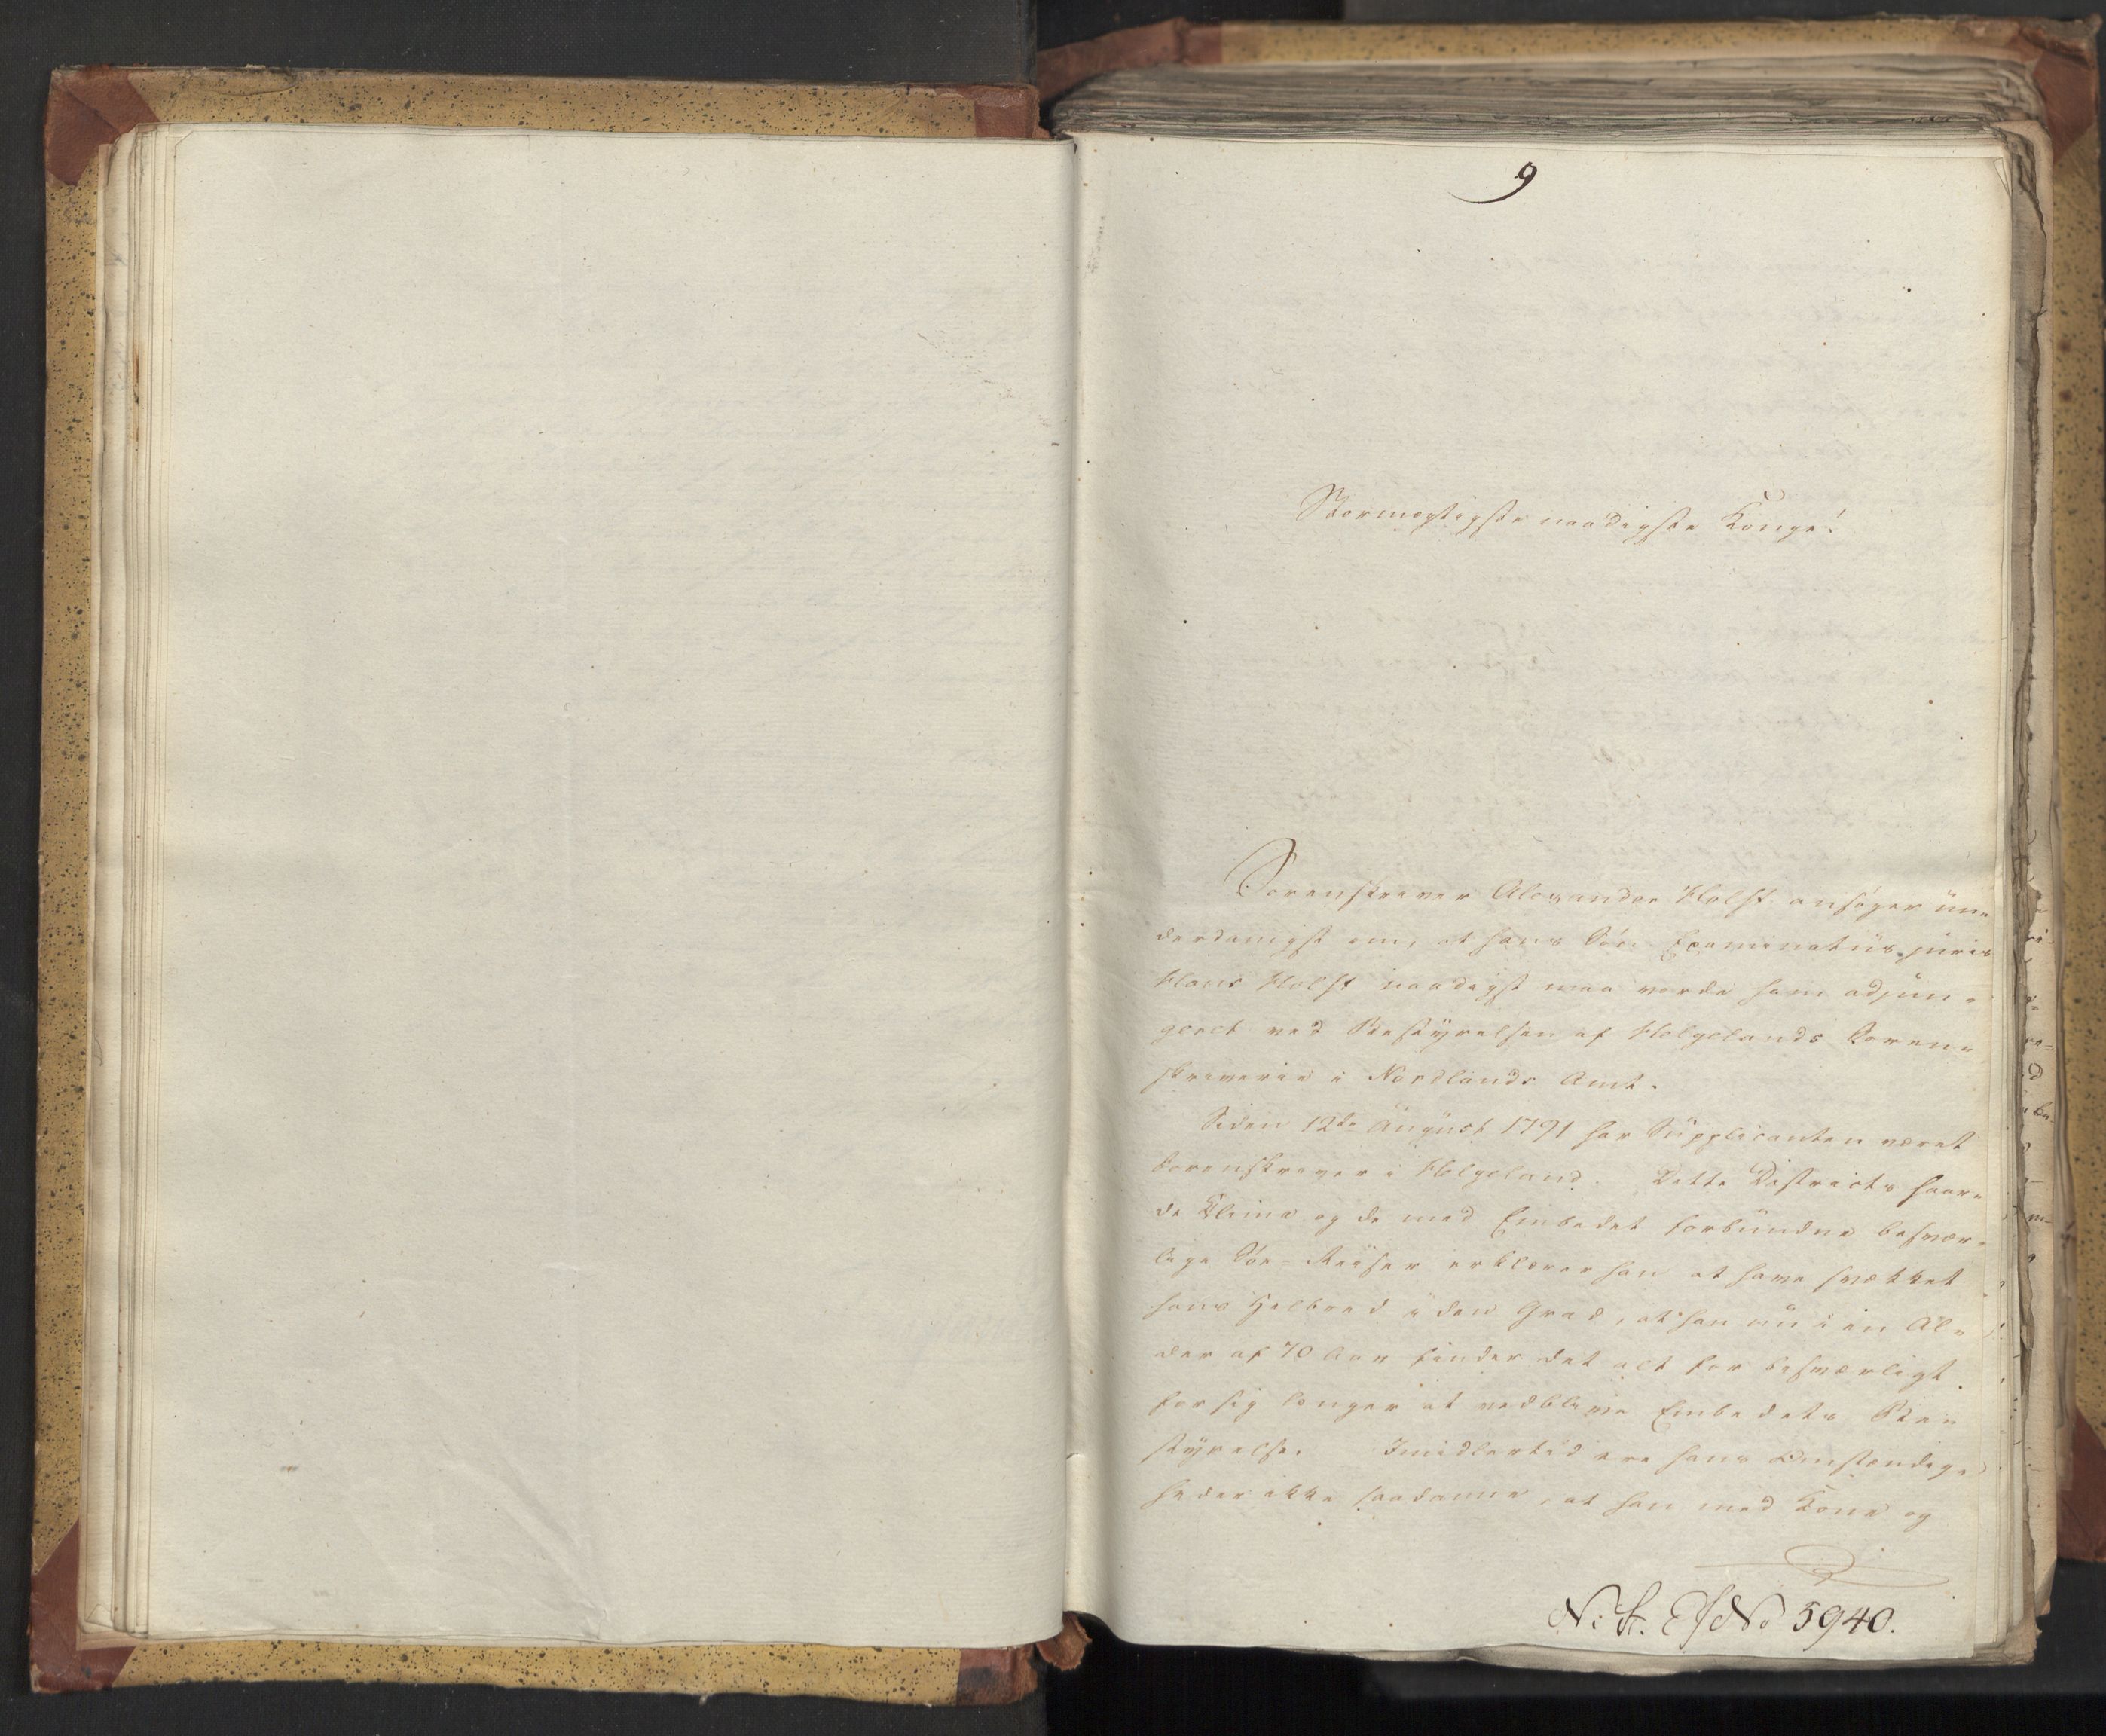 9
Stormægtigste naadigste Konge!
Sorenskriver Alexander Holst ansøger un-
derdanigst om, at hans Søn Examinatus juris
Hans Holst naadigst maa vorde ham adjun-
geret ved Bestyrelsen af Helgelands Soren-
skriverie i Nordlands Amt.
Siden 12te August 1791 har Supplicanten været
Sorenskriver i Helgeland. Dette Districts haar-
de Clima og de med Embedet forbundne besvær-
lige Søe-Reiser erklærer han at have svækket
hans Helbred i den Grad, at han nu i en Al-
der af 70 Aar finder det alt for besværligt
for sig længer at vedblive Embedets Be-
styrelse. Imidlertid ere hans Omstændig-
heder ikke saadanne, at han med Kone og
No 5940.